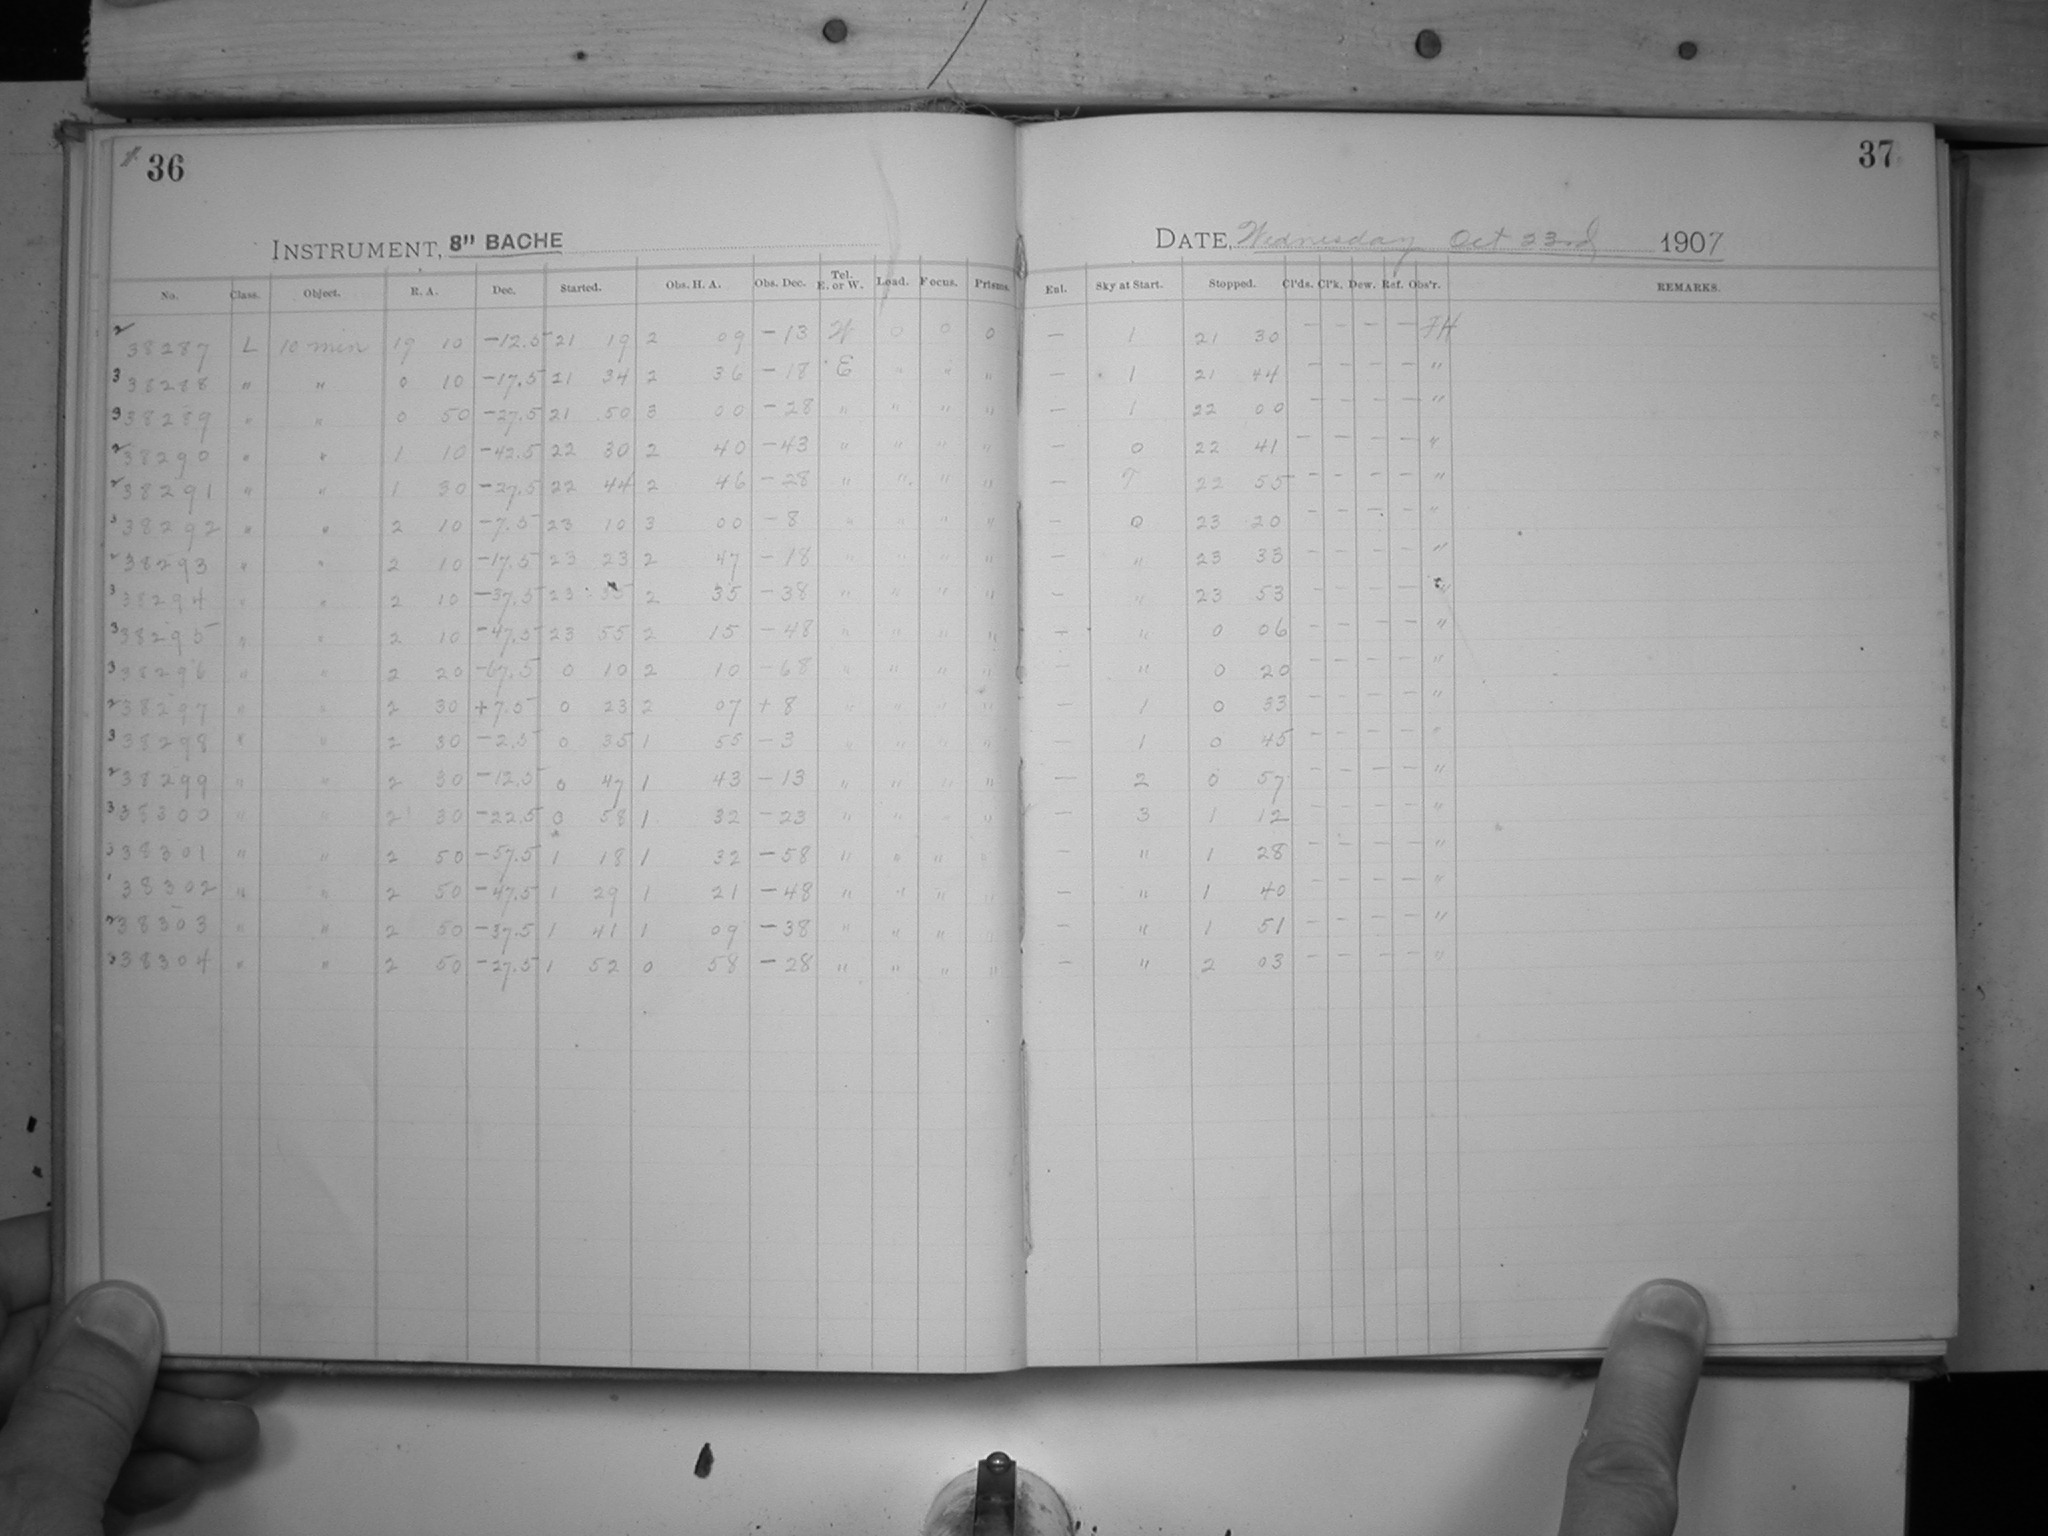 36
INSTRUMENT, 8" BACHE
No. Class. Object. R. A. Dec. Started. Obs. H. A. Obs. Dec. Tel. E. or W. Load. Focus. Prisms.
2 38287 L 10 min 19 10 -12.5 21 19 2 09 -13 W 0 0 0
3 38288 " " 0 10 -17.5 21 34 2 36 -18 E " " "
3 38289 " " 0 50 -27.5 21 50 3 00 -28 " " " "
2 38290 " " 1 10 -42.5 22 30 2 40 -43 " " " "
2 38291 " " 1 30 -27.5 22 44 2 46 -28 " " " "
3 38292 " " 2 10 -7.5 23 10 3 00 -8 " " " "
38293 " " 2 10 -17.5 23 23 2 47 -18 " " " "
3 38294 " " 2 10 -37.5 23 35 2 35 -38 " " " "
3 38295 " " 2 10 -47.5 23 55 2 15 -48 " " " "
3 38296 " " 2 20 -67.5 0 10 2 10 -68 " " " "
2 38297 " " 2 30 +7.5 0 23 2 07 +8 " " " "
3 38298 " " 2 30 -2.5 0 35 1 55 -3 " " " "
2 38299 " " 2 30 -12.5 0 47 1 43 -13 " " " "
3 38300 " " 2 30 -22.5 0 58 1 32 -23 " " " "
3 38301 " " 2 50 -57.5 1 18 1 32 -58 " " " "
1 38302 " " 2 50 -47.5 1 29 1 21 -48 " " " "
2 38303 " " 2 50 -37.5 1 41 1 09 -38 " " " "
3 38304 " " 2 50 -27.5 1 52 0 58 -28 " " " "
37
DATE, Wednesday Oct 23rd 1907
Enl. Sky at Start. Stopped. Cl'ds. Cl'k. Dew. Ref. Obs'r. REMARKS.
— 1 21 30 — — — — FH
— 1 21 44 — — — — "
— 1 22 00 — — — — "
— 0 22 41 — — — — "
— T 22 55 — — — — "
— 0 23 20 — — — — "
— " 23 33 — — — — "
— " 23 53 — — — — "
— " 0 06 — — — — "
— " 0 20 — — — — "
— 1 0 33 — — — — "
— 1 0 45 — — — — "
— 2 0 57 — — — — "
— 3 1 12 — — — — "
— " 1 28 — — — — "
— " 1 40 — — — — "
— " 1 51 — — — — "
— " 2 03 — — — — "